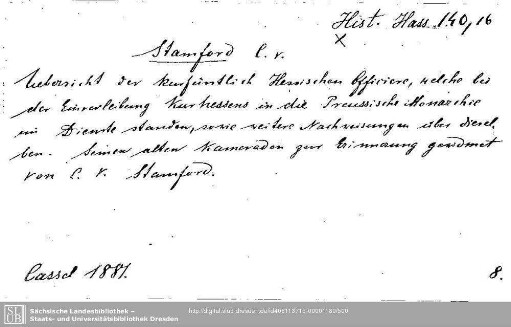 Hist. Hass. 140,16
X
Stamford C. v.
Uebersicht der kurfürstlich Hessischen Officiere, welche bei
der Einverleibung Kurhessens in die Preussische Monarchie
im Dienste standen, sowie weitere Nachweisungen über diesel-
ben. Seinen alten Kameraden zur Erinnerung gewidmet
von C. v. Stamford.
Cassel 1881.
8.
SLUB
Sächsische Landesbibliothek –
Staats- und Universitätsbibliothek Dresden